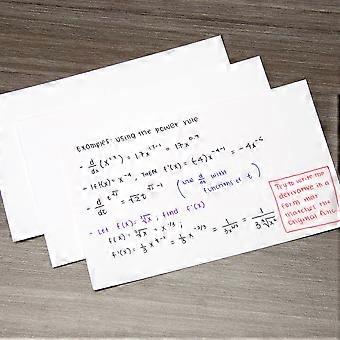 Examples: Using the power rule
- d/dx (x^1.7) = 1.7x^1.7-1 = 1.7x^0.7
- If f(x) = x^-4, then f'(x) = (-4)x^-4-1 = -4x^-5
- d/dt t^√2 = √2 t^√2-1 (Use d/dt with functions of t)
- Let f(x) = ∛x, find f'(x)
f(x) = ∛x = x^1/3;
f'(x) = 1/3 x^1/3-1 = 1/3 x^-2/3 = 1/3x^2/3 = 1/3∛x²
Try to write the
derivative in a
form that
matches the
original func.